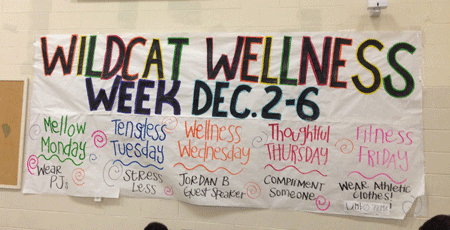 WILDCAT WELLNESS
WEEK DEC. 2-6
Mellow
Monday
Wear
PJs
Tensless
Tuesday
STRESS
LESS
Wellness
Wednesday
JORDAN B
Guest Speaker
Thoughtful
THURSDAY
COMPLIMENT
Someone
Fitness
FRIDAY
WEAR Athletic
Clothes!